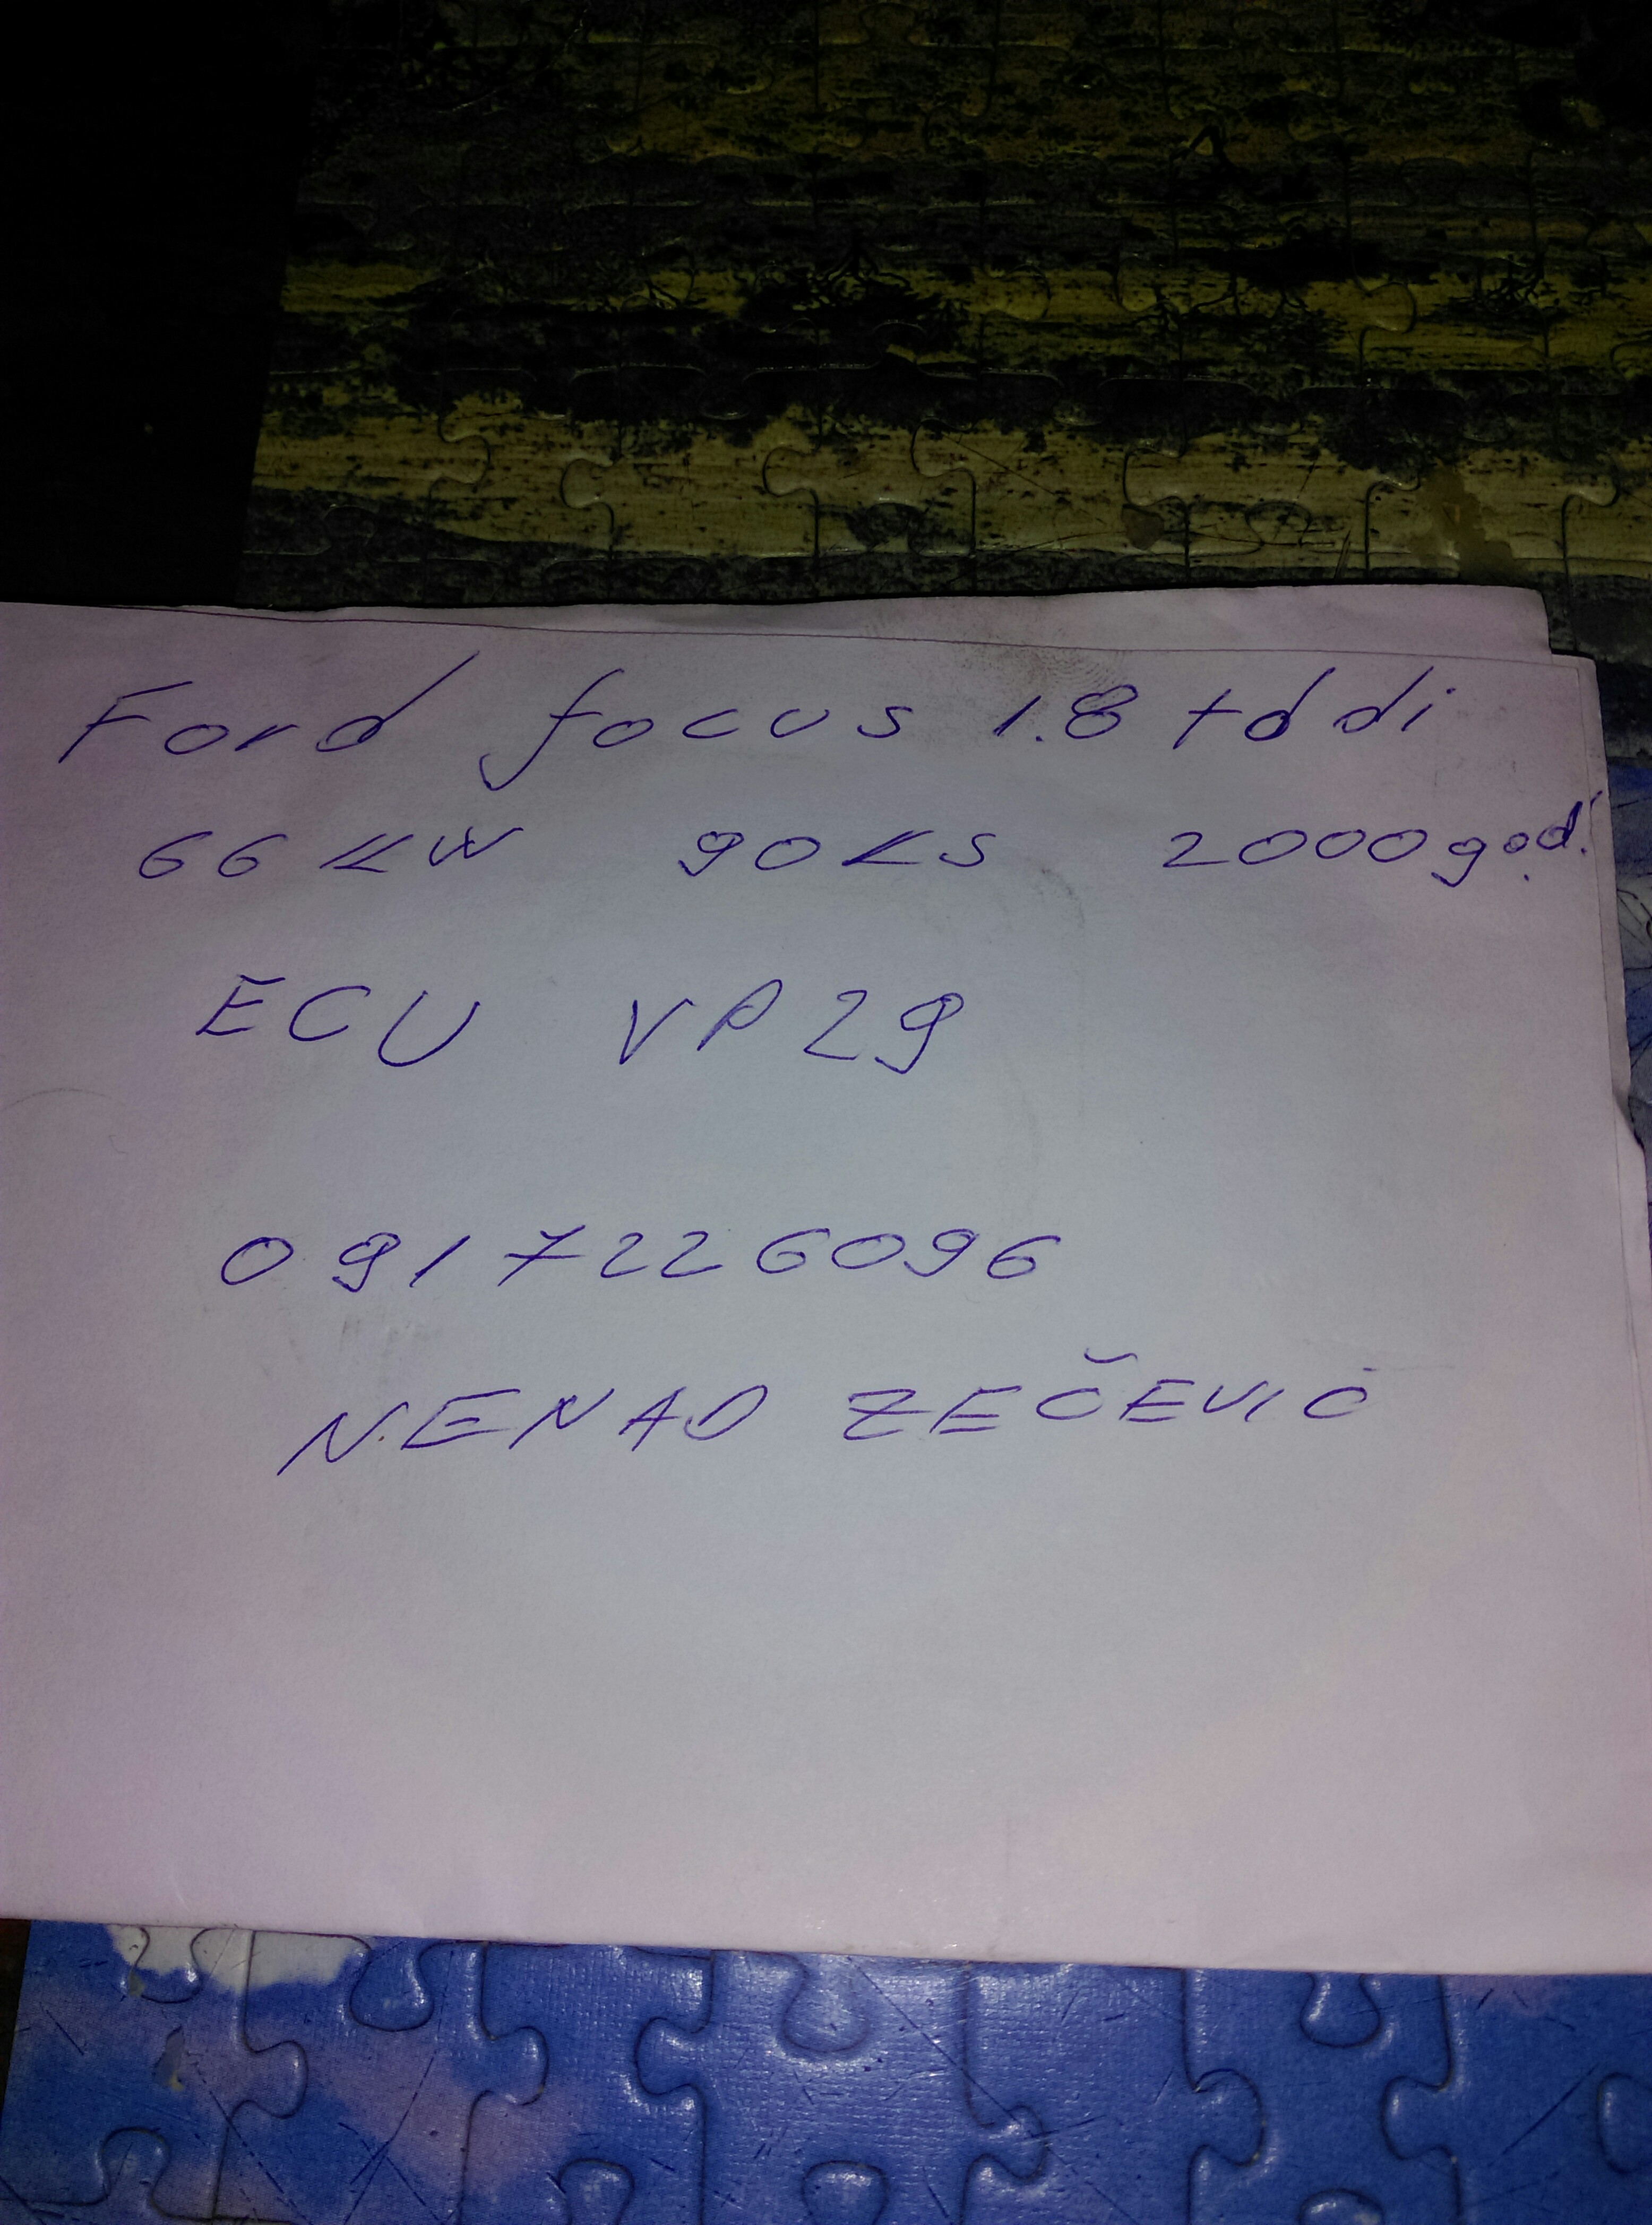 Ford focus 1.8 tddi
66 KW 90 KS 2000 god.
ECU VP29
091 7226096
NENAD ZEČEVIĆ